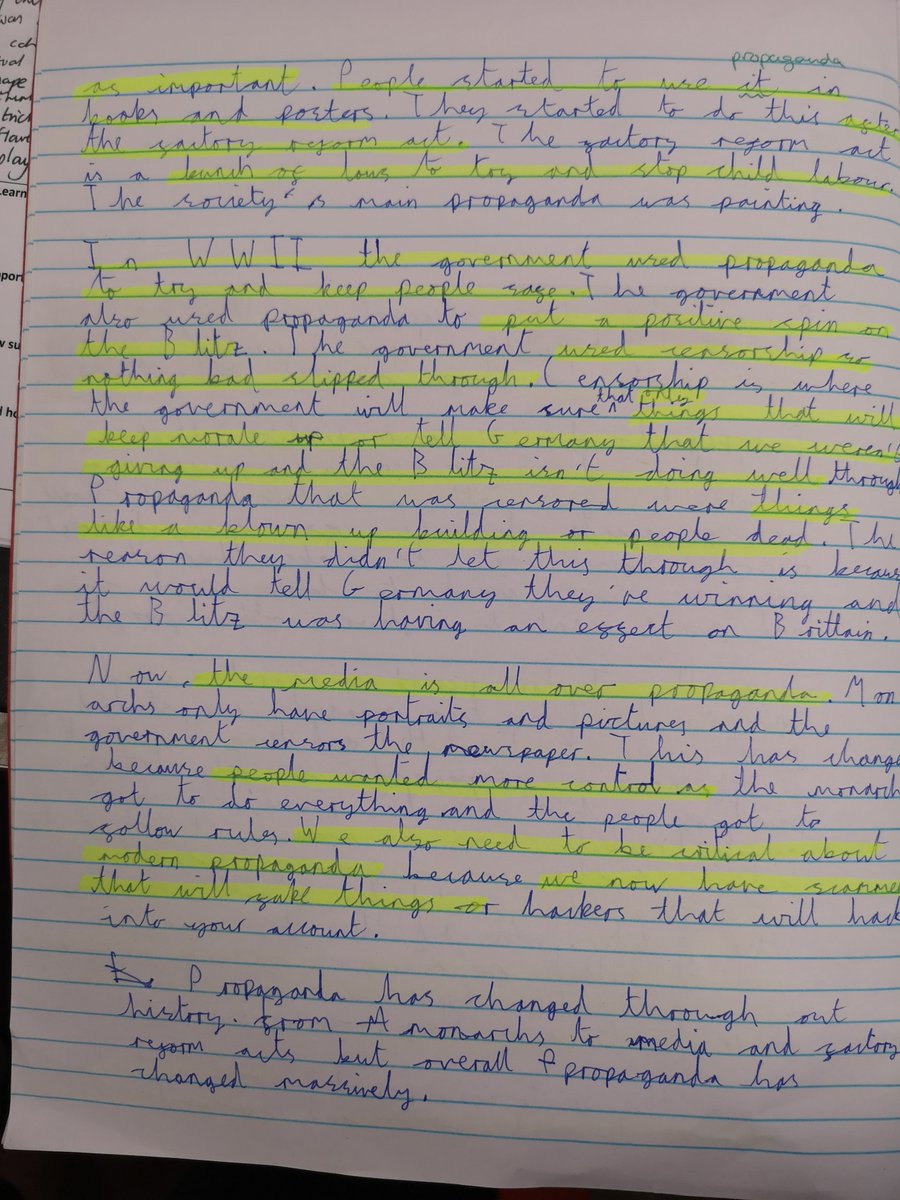 propaganda
as important. People started to use it in
books and posters. They started to do this after
the factory reform act. The factory reform act
is a bunch of laws to try and stop child labour.
The society's main propaganda was painting.
In WWII the government used propaganda
to try and keep people safe. The government
also used propaganda to put a positive spin on
the Blitz. The government used censorship so
nothing bad slipped through. Censorship is where
that only
the government will make sure ^ things that will
keep morale up or tell Germany that we weren't
giving up and the Blitz isn't doing well through
Propaganda that was censored were things
like a blown up building or people dead. The
reason they didn't let this through is becaus
it would tell Germany they're winning and
the Blitz was having an effect on Brittain.
Now, the media is all over propaganda. Mon
archs only have portraits and pictures and the
government censors the newspaper. This has change
because people wanted more control as the monarch
got to do everything and the people got to
follow rules. We also need to be critical about
modern propaganda because we now have scamme
that will fake things or hackers that will hack
into your account.
Propaganda has changed through out
history. from monarchs to media and factory
reform acts but overall propaganda has
changed massively.